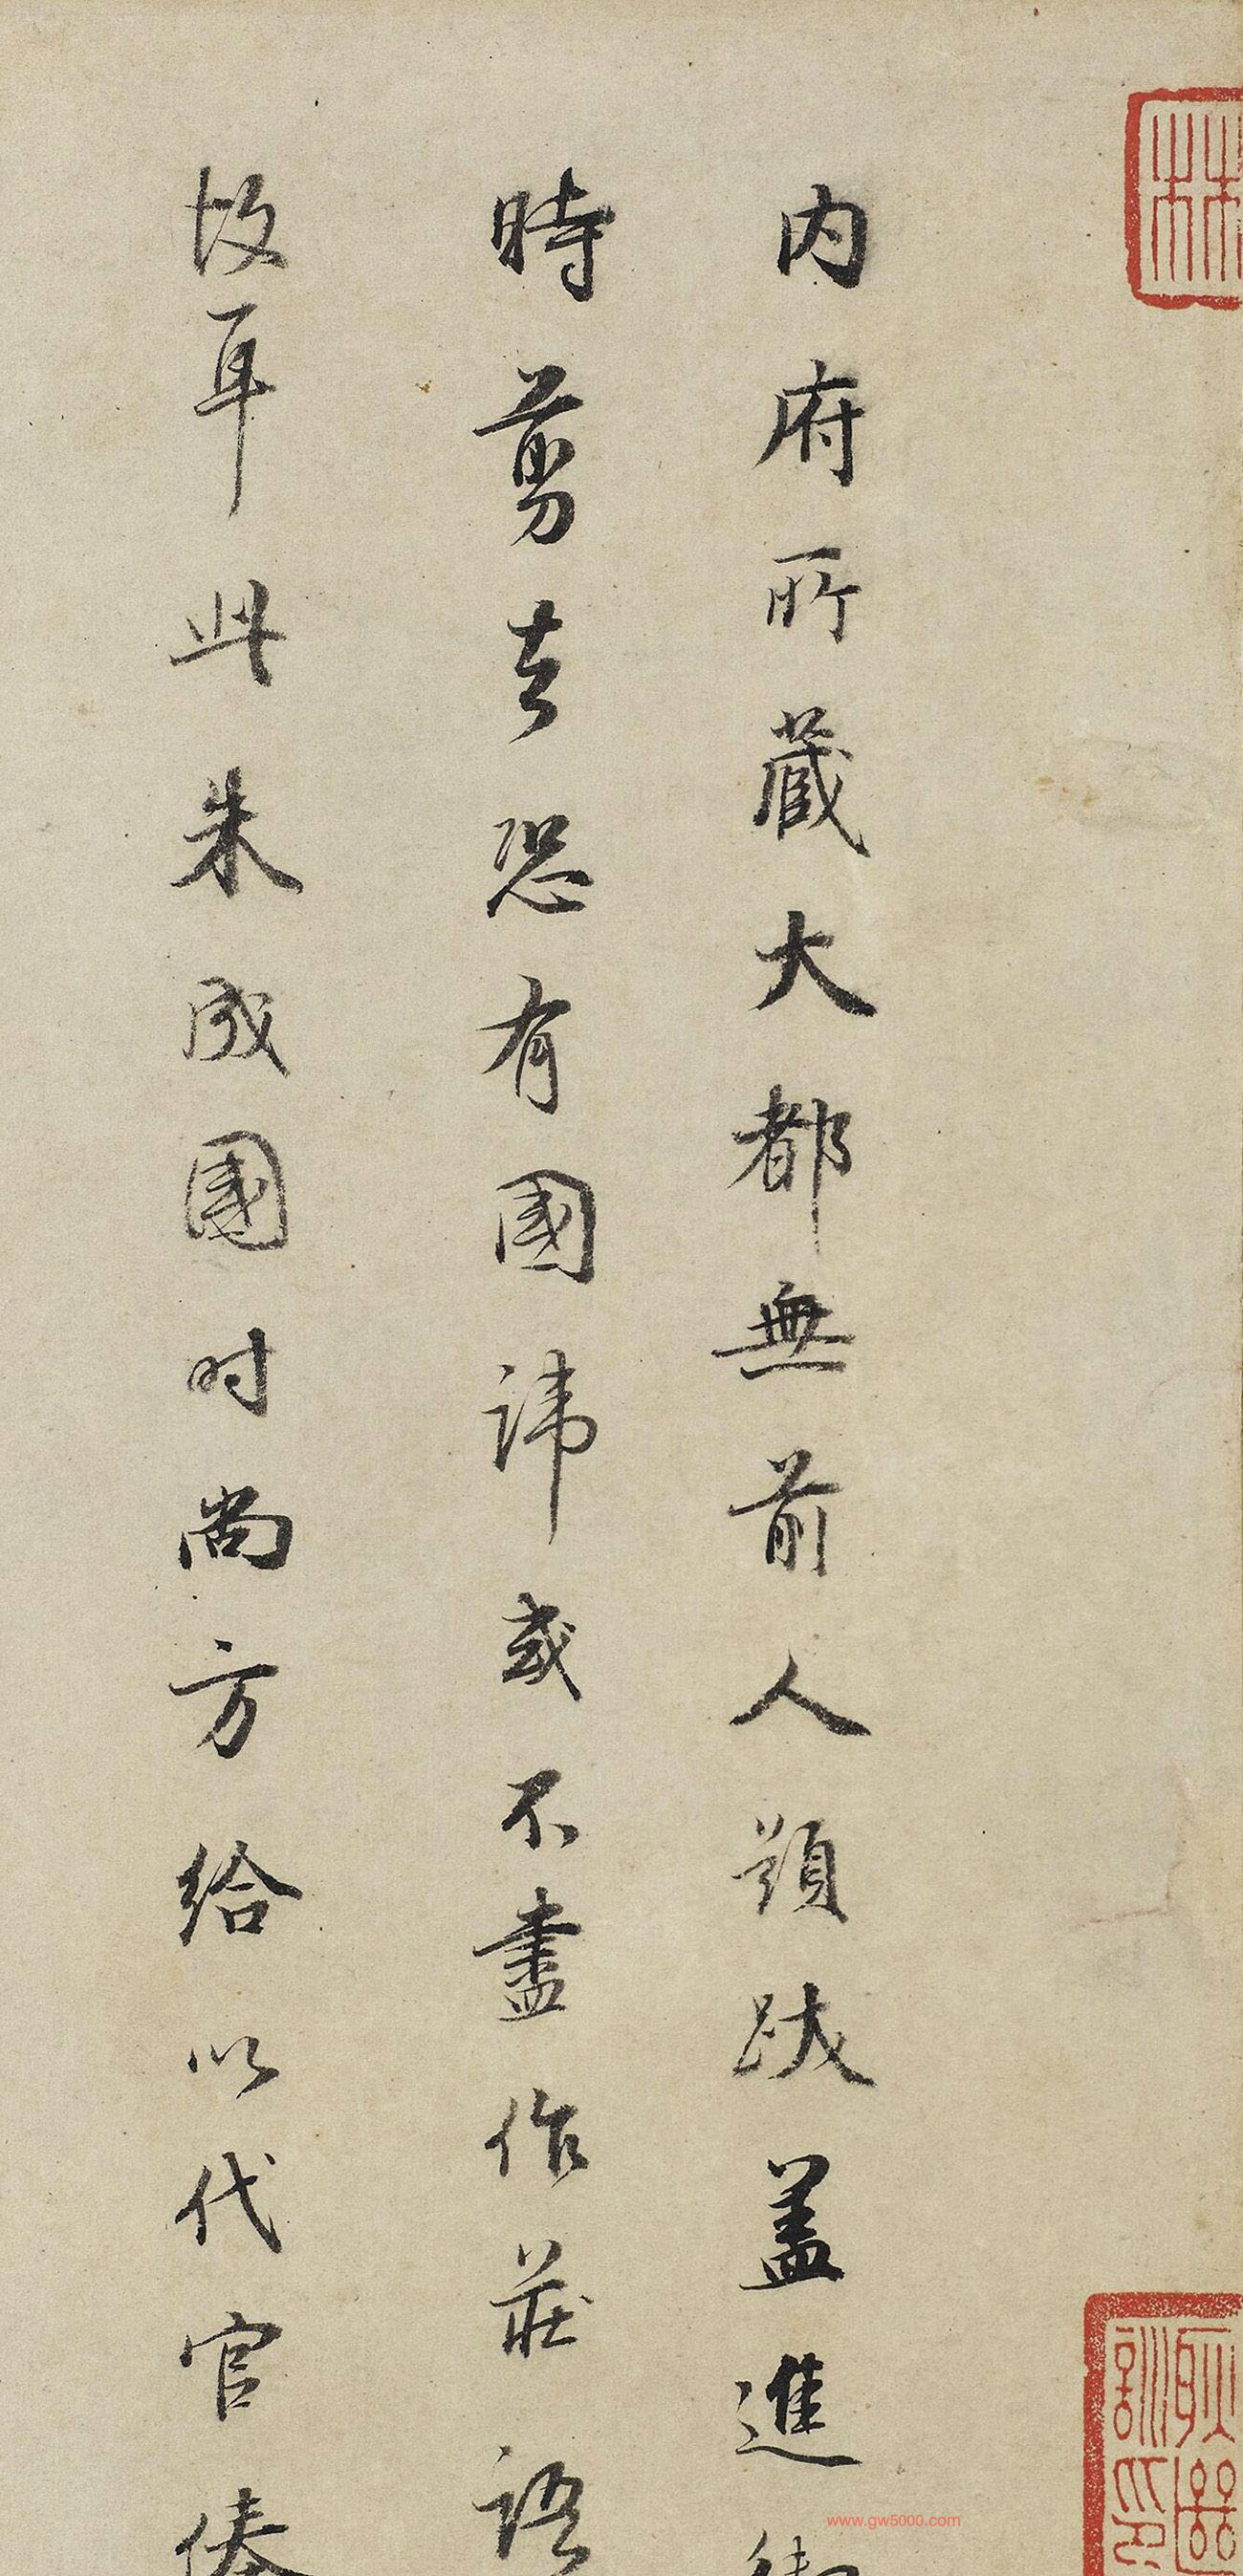 内府所藏大都無前人題跋蓋進御
時剪去恐有國諱或不盡作莊語
故耳此朱成國时尚方給以代官俸
林
耿
www.gw5000.com